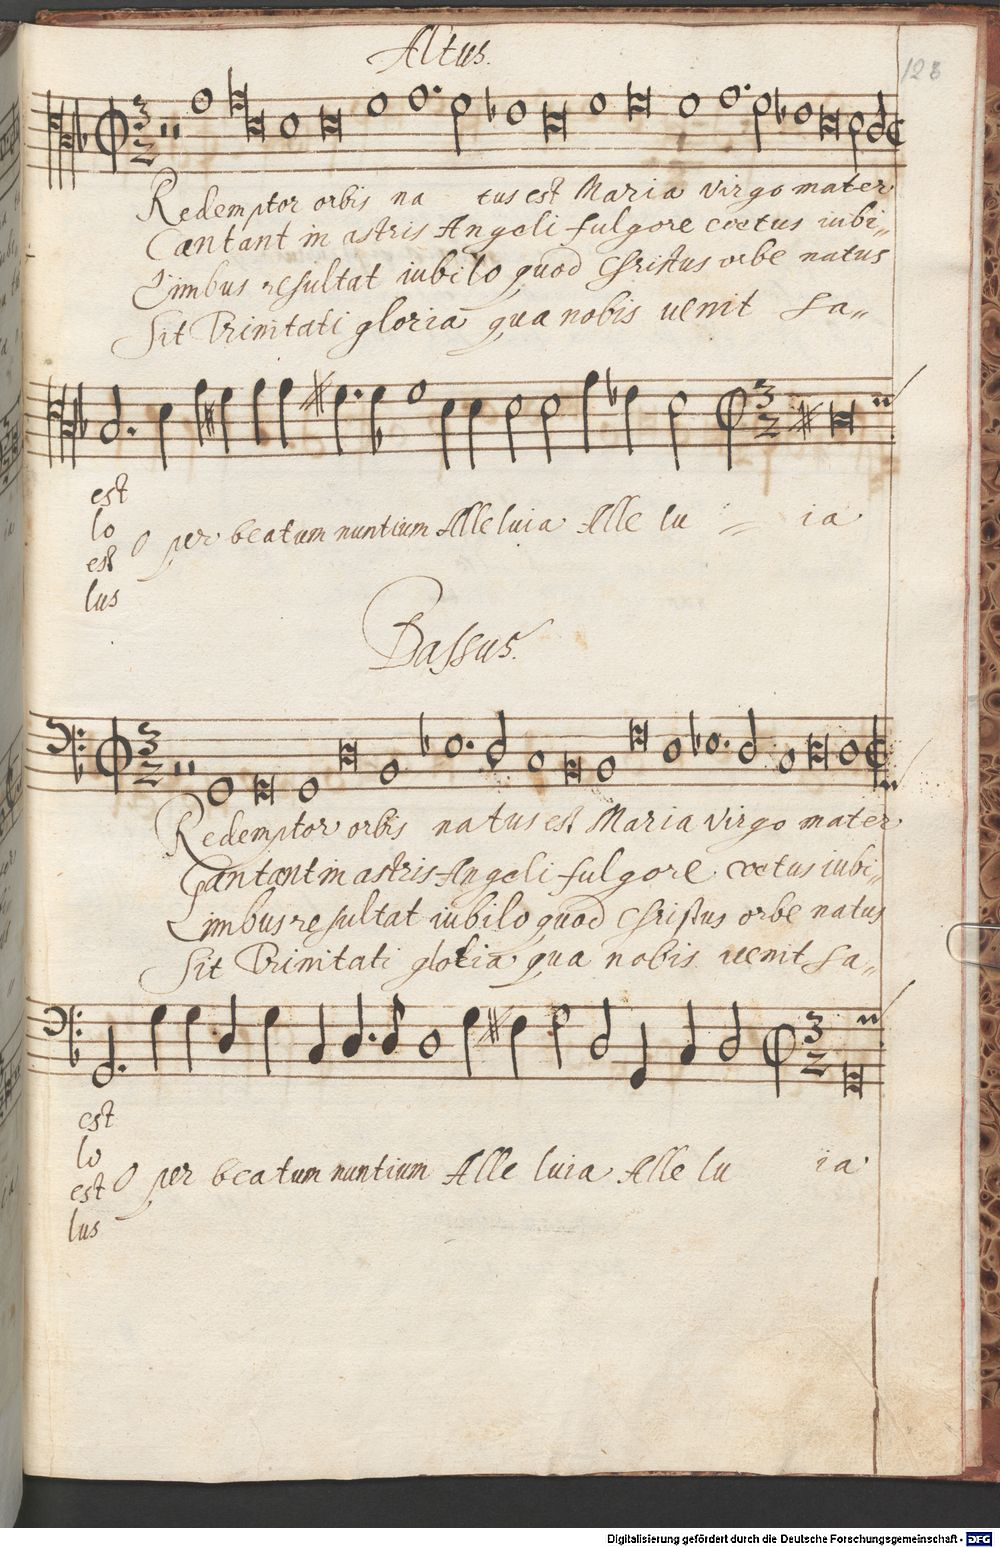 Altus.
128
Redemptor orbis na tus est Maria Virgo mater
Cantant in astris Angeli fulgore coetus iubi„
Limbus resultat iubilo quod Christus orbe natus
Sit Trinitati gloria qua nobis uenit Sa„
est
lo
est
lus
O per beatum nuntium Alleluia Alle lu ia
Bassus.
Redemptor orbis natus est Maria Virgo mater
Cantant in astris Angeli fulgore coetus iubi„
Limbus resultat iubilo quod Christus orbe natus
Sit Trinitati gloria qua nobis uenit Sa„
est
lo
est
lus
O per beatum nuntium Alle luia Alle lu ia
Digitalisierung gefördert durch die Deutsche Forschungsgemeinschaft - DFG